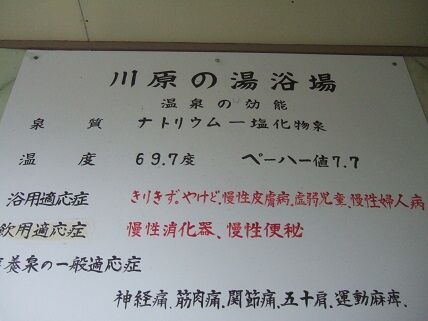 川原の湯浴場
温泉の効能
泉質 ナトリウム一塩化物泉
温度 69.7度 ペーハー値7.7
浴用適応症 きりきず。やけど、慢性皮膚病、虚弱児童、慢性婦人病
飲用適応症 慢性消化器、慢性便秘
養泉の一般適応症
神経痛、筋肉痛、関節痛、五十肩、運動麻痺、